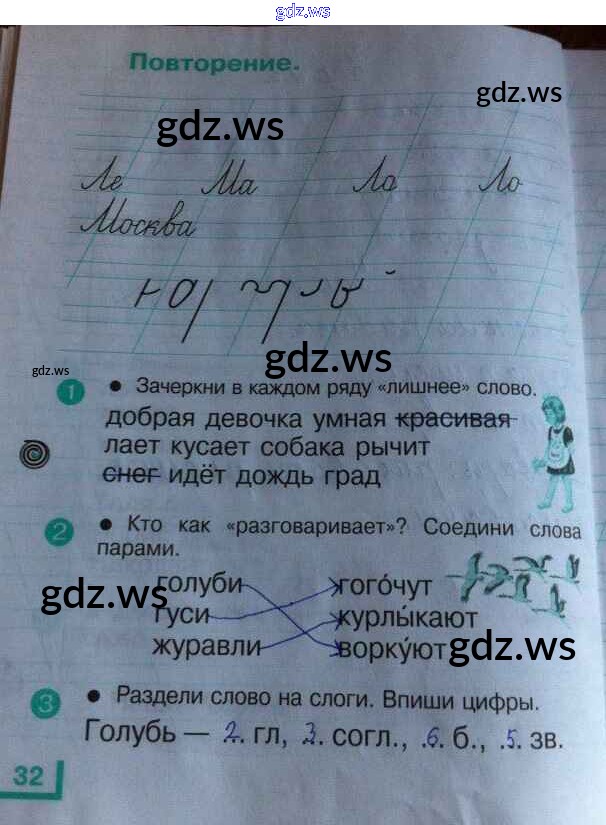 gdz.ws
Повторение.
gdz.ws
gdz.ws
Ле Ма Ла Ло
Москва
gdz.ws
gdz.ws
1 • Зачеркни в каждом ряду «лишнее» слово.
добрая девочка умная красивая
лает кусает собака рычит
снег идёт дождь град
2 • Кто как «разговаривает»? Соедини слова
парами.
голуби гого́чут
gdz.ws
гуси курлы́кают
журавли ворку́ют
gdz.ws
3 • Раздели слово на слоги. Впиши цифры.
Голубь — 2. гл, 3. согл., .6. б., .5. зв.
32